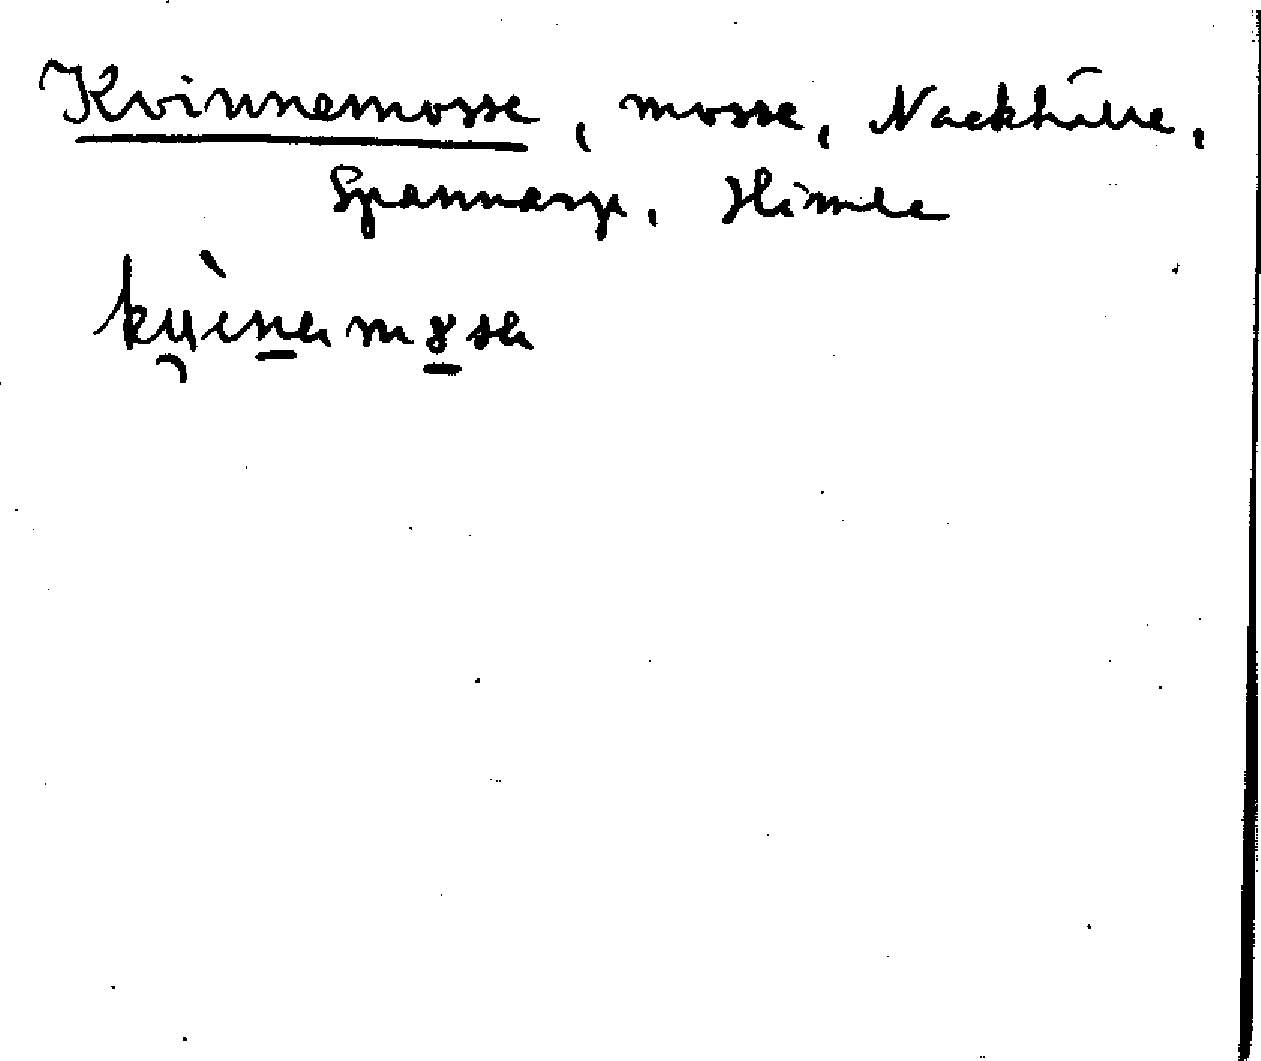 Kvinnemosse, mosse, Nackhälle,
Spannarp, Himle